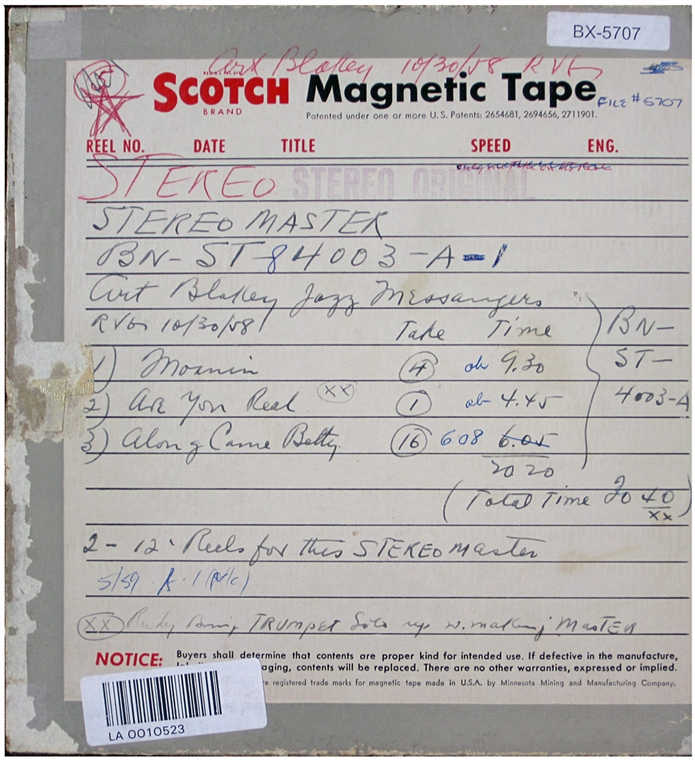 BX-5707
Art Blakey 10/30/58 RVG
SCOTCH Magnetic Tape
BRAND
FILE # 5707
Patented under one or more U.S. Patents: 2654681, 2694656, 2711901.
REEL NO. DATE TITLE SPEED ENG.
STEREO STEREO ORIGINAL
STEREO MASTER
BN-ST-84003-A-1
Art Blakey Jazz Messangers
RVG 10/30/58 Take Time BN-
1) Moanin 4 ok 9.30 ST-
2) Are You Real XX 1 ok 4.45 4003-A
3) Along Came Betty 16 608 6.05
20 20
(Total Time 20 40)
XX
2 - 12" Reels for this STEREO Master
5/59 A-1
XX Rudy Bring TRUMPET Solo up w. making MASTER
NOTICE: Buyers shall determine that contents are proper kind for intended use. If defective in the manufacture,
aging, contents will be replaced. There are no other warranties, expressed or implied.
registered trade marks for magnetic tape made in U.S.A. by Minnesota Mining and Manufacturing Company.
LA 0010523